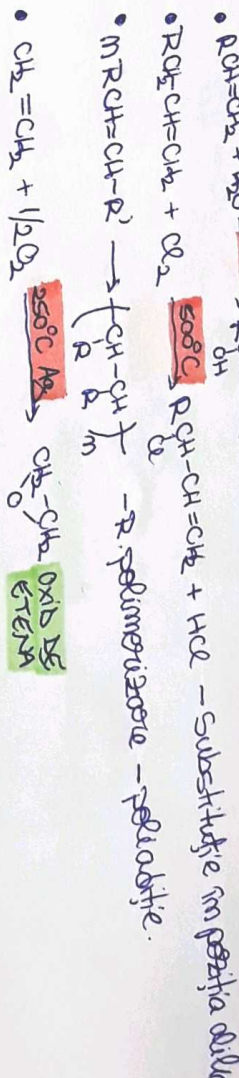 • RCH=CH₂ + H₂O
OH
• RCH₂-CH=CH₂ + Cl₂ 500°C → RCH-CH=CH₂ + HCl - Substituție în poziția
Cl
• nRCH=CH-R' → (CH-CH)n - R. polimerizare - poliadiție.
R R
• CH₂=CH₂ + 1/2O₂ 250°C Ag → CH₂-CH₂ OXID DE
O ETENĂ